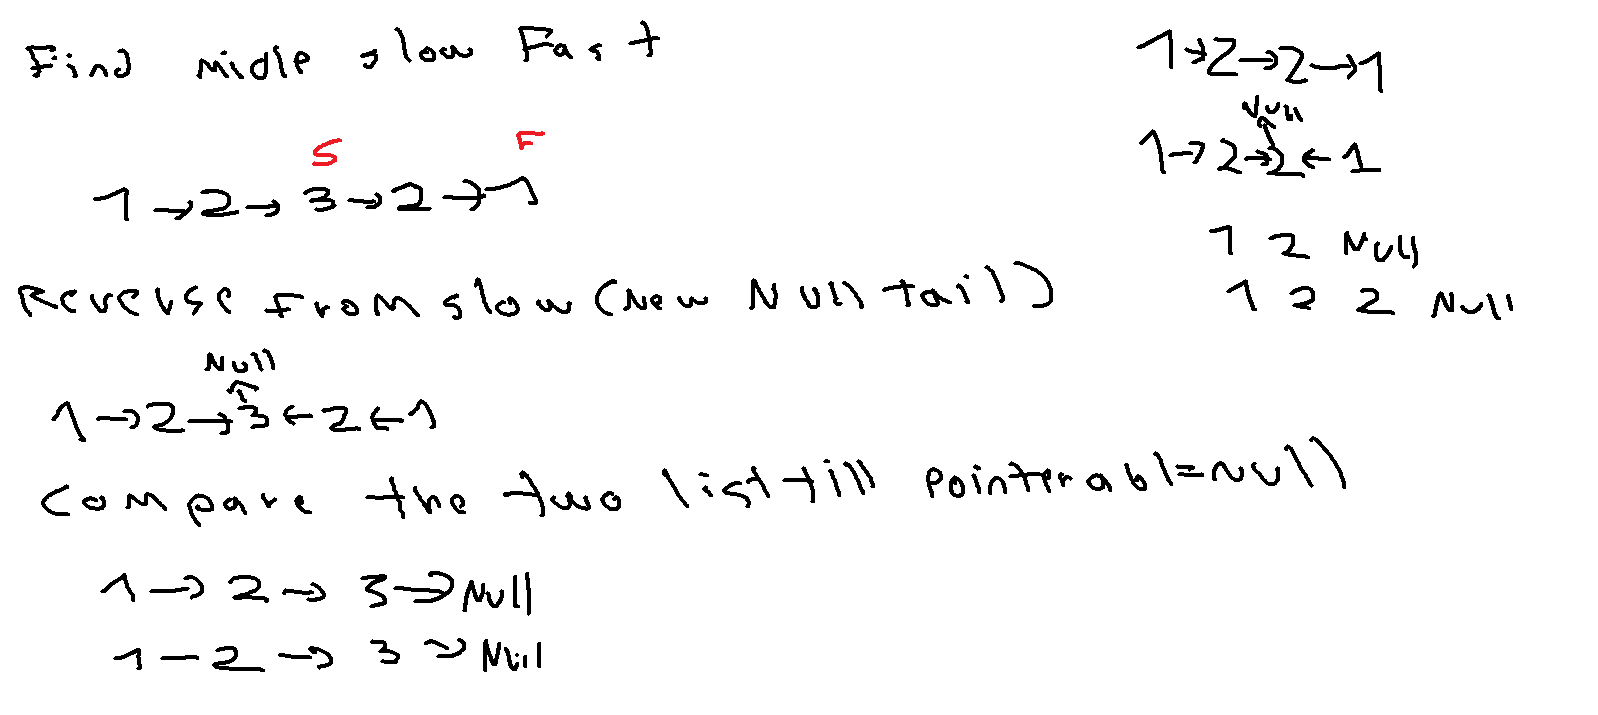 Find midle slow Fast
S F
1→2→3→2→1
Reverse From slow (New Null tail)
Null
1→2→3←2←1
Compare the two list till pointerabl=null
1→2→3→Null
1-2→3→Null
1→2→2→1
Null
1→2→2←1
1 2 Null
1 2 2 Null